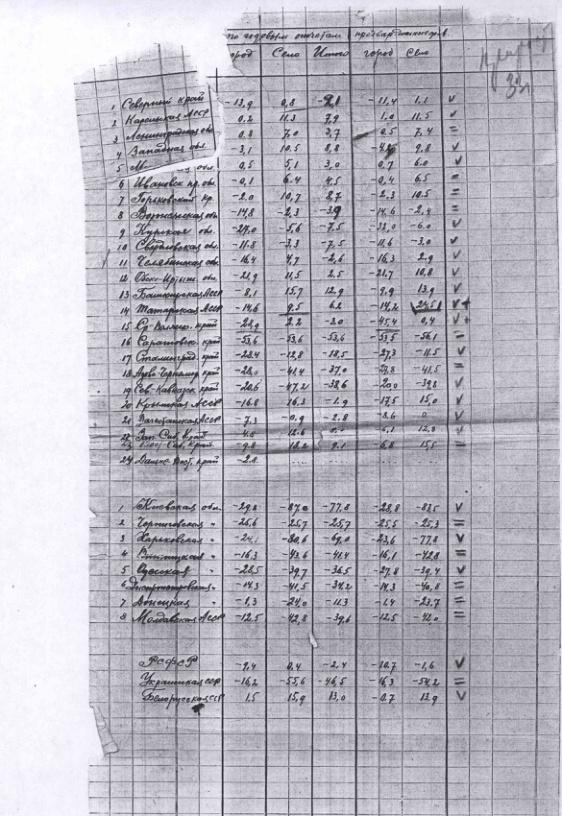 по годовым отчетам
город Село Итого город Село
33
1 Северный край -13,9 0,8 -2,1 -11,4 1,1 v
2 Карельская АССР 0,2 11,3 7,9 1,0 11,5 v
3 Ленинградская обл. 0,8 7,0 3,7 0,5 7,4 =
4 Западная обл. -3,1 10,5 8,8 9,8 v
5 обл. 0,5 5,1 3,0 0,7 6,0 v
6 Ивановск. пр. обл. -0,1 6,4 4,5 -0,4 6,5 =
7 Горьковский кр. -2,0 10,7 8,7 -2,3 10,5 =
8 Воронежская обл. -14,8 -2,3 -3,9 -14,6 -2,4 =
9 Курская обл. -27,0 -5,6 -7,5 -32,0 -6,0 v
10 Свердловская обл. -11,8 -3,3 -7,5 -11,6 -3,0 v
11 Челябинская обл. -16,4 4,7 -2,6 -16,3 2,9 v
12 Обско-Иртыш. обл. -21,9 11,5 2,5 -21,7 10,8 v
13 Башкирская АССР -8,1 15,7 12,9 -9,9 13,9 v
14 Татарская АССР -14,6 9,5 6,2 -14,2 24,5 v+
15 Ср-Волжск. край 2,2 -3,0 -45,4 0,4 v+
16 Саратовск. край -53,6 -53,6 -53,6 -53,5 -56,1 =
17 Сталинград. край -23,4 -12,8 -18,5 -27,3 -11,5 v
18 Азово-Черномор. край -28,0 -41,4 -37,0 -27,8 -41,5 =
19 Сев-Кавказск. край -20,6 -47,2 -38,6 -20,0 -39,8 v
20 Крымская АССР -16,8 16,3 -1,9 -17,5 15,0 v
21 АССР -7,3 -0,9 -2,8 -8,6 0 v
22 Зап. Сиб. край 12,6 12,3 v
23 Вост. Сиб. край -9,8 18,2 9,1 -6,8 15,5 =
24 Дальне-Вост. край -2,8 .... .... .... ....
1 Киевская обл. -29,8 -87,0 -77,8 -28,8 -83,5 v
2 Черниговская " -26,6 -25,7 -25,7 -25,5 -25,3 =
3 Харьковская " -80,6 -69,0 -23,6 -77,8 v
4 Винницкая " -16,3 -43,6 -41,4 -16,1 -42,8 =
5 Одесская " -28,5 -39,7 -36,5 -27,8 -39,4 v
6 Днепропетровская " -14,3 -41,5 -34,2 -14,3 -40,8 =
7 Донецкая " -1,3 -24,0 -11,3 -1,4 -23,7 =
8 Молдавская АССР -12,5 -42,8 -39,6 -12,5 -42,0 =
РСФСР -9,4 0,4 -2,4 -10,7 -1,6 v
Украинская ССР -16,2 -55,6 -46,5 -16,3 -54,2 =
Белорусская ССР 1,5 15,9 13,0 -0,7 13,9 v